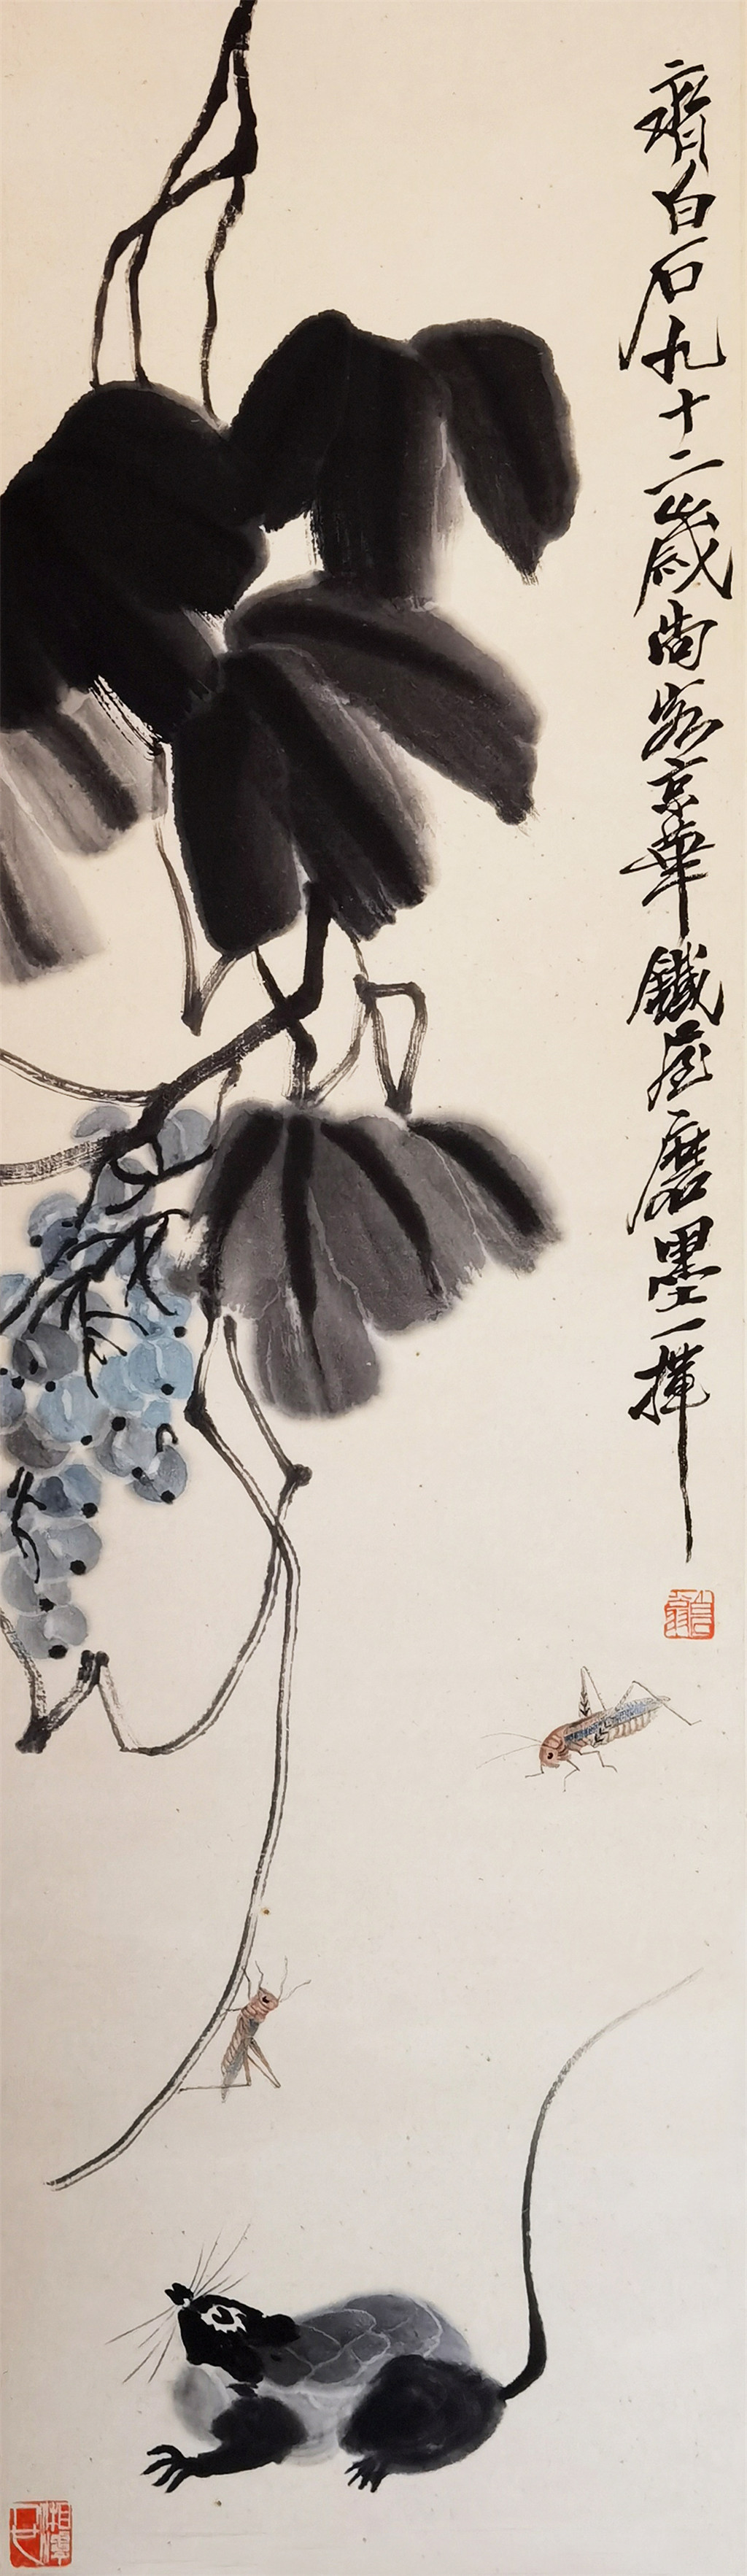 齊白石九十二歲尚客京華鐵屋磨墨一揮
湘潭人也